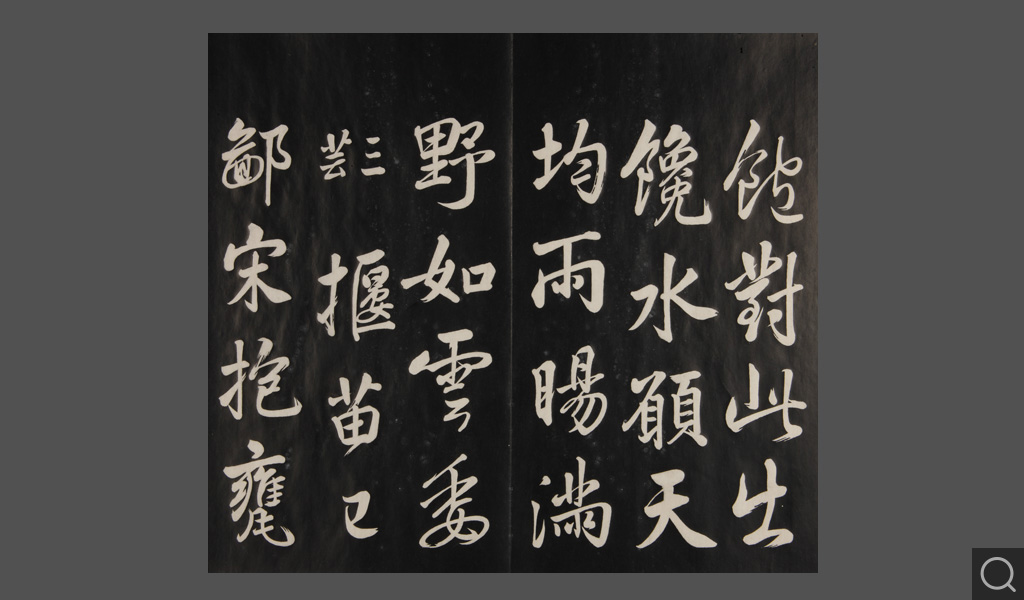 飽對此出
饞水願天
均雨暘滿
野如雲委
三芸揠苗已
鄙宋抱甕